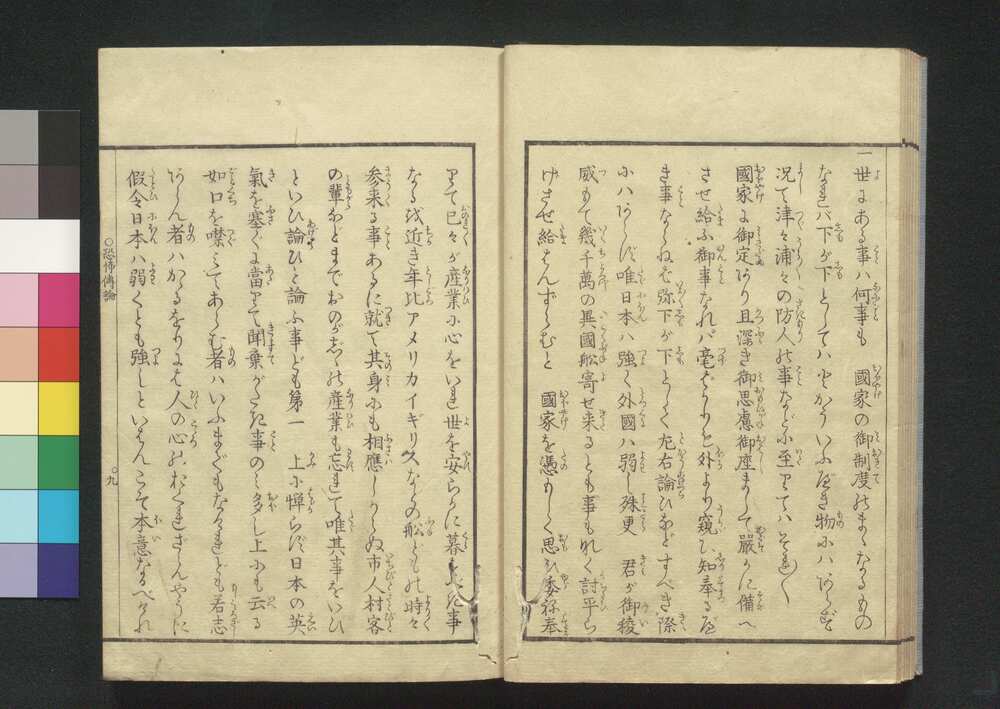 一世にある事ハ何事も　國家の御制度のまゝなるもの
なれバ下が下としてハとかういふべき物にハあらず
況て津々浦々の防人の事などに至りてハそれ〳〵
國家に御定あり且深き御思慮御座まして嚴かに備へ
させ給ふ御事なれバ毫ばかりも外より窺ひ知奉るべ
き事ならねば弥下が下として左右論ひなどすべき際
にハあらず唯日本ハ強く外國ハ弱し殊更　君が御稜
威もて幾千萬の異國舩寄せ来るとも事もなく討平ら
げさせ給はんずらむと　國家を憑もしく思ひ委ね奉
りて己々が産業に心をいれ世を安らかに暮すべき事
なるを近き年比アメリカイギリスなどの舩どもの時々
参来る事あるに就て其身にも相應しからぬ市人村客
の輩などまでおのがじゝの産業も忘れて唯其事をいひ
といひ論ひと論ふ事ども第一　上に憚らず日本の英
氣を塞ぐに當りて聞棄がたき事のミ多し上にも云る
如口を噤ミてあらむ者ハいふまでもなけれども若志
あらん者ハかゝるをりにこそ人の心のおくれざらんやうに
假令日本ハ弱くとも強しといはんこそ本意なるべけれ
○恐怖傳論
○九